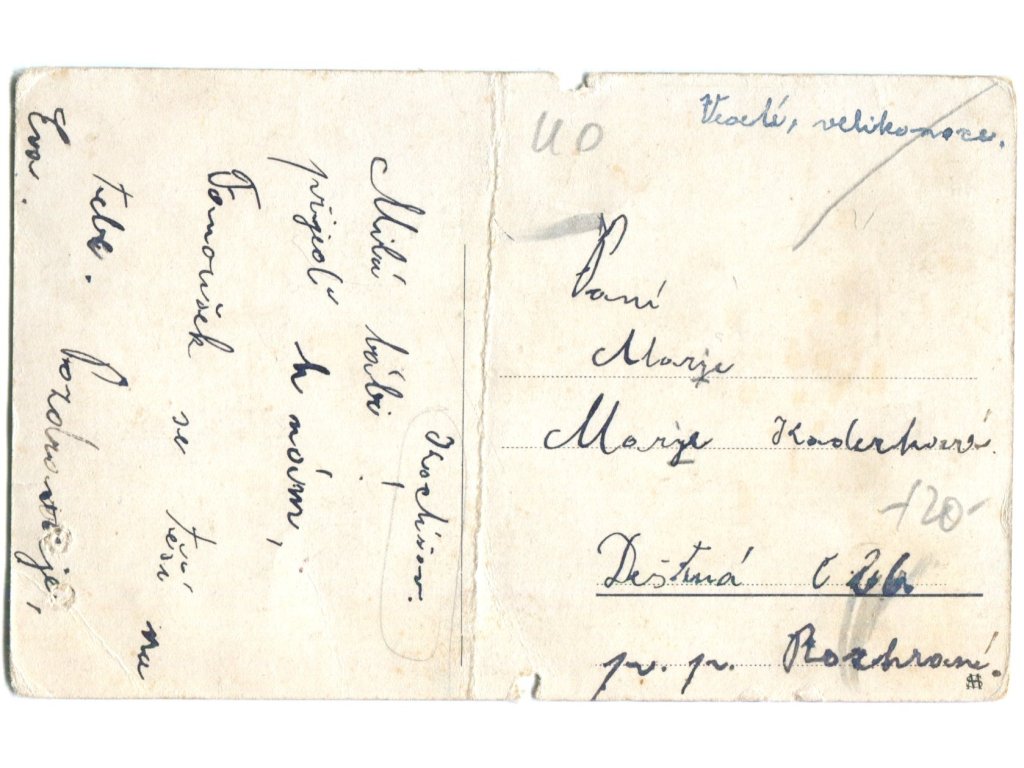 Kochov.
Milá bábi!
přijeď k nóím,
Tamoušek se těší na
tebe. Pozdravuje,
Eva.
40
Veselé, velikonoce.
Paní
Marje
Marje Kaderková
120-
Deštná č 26.
p. p. Rozhraní.